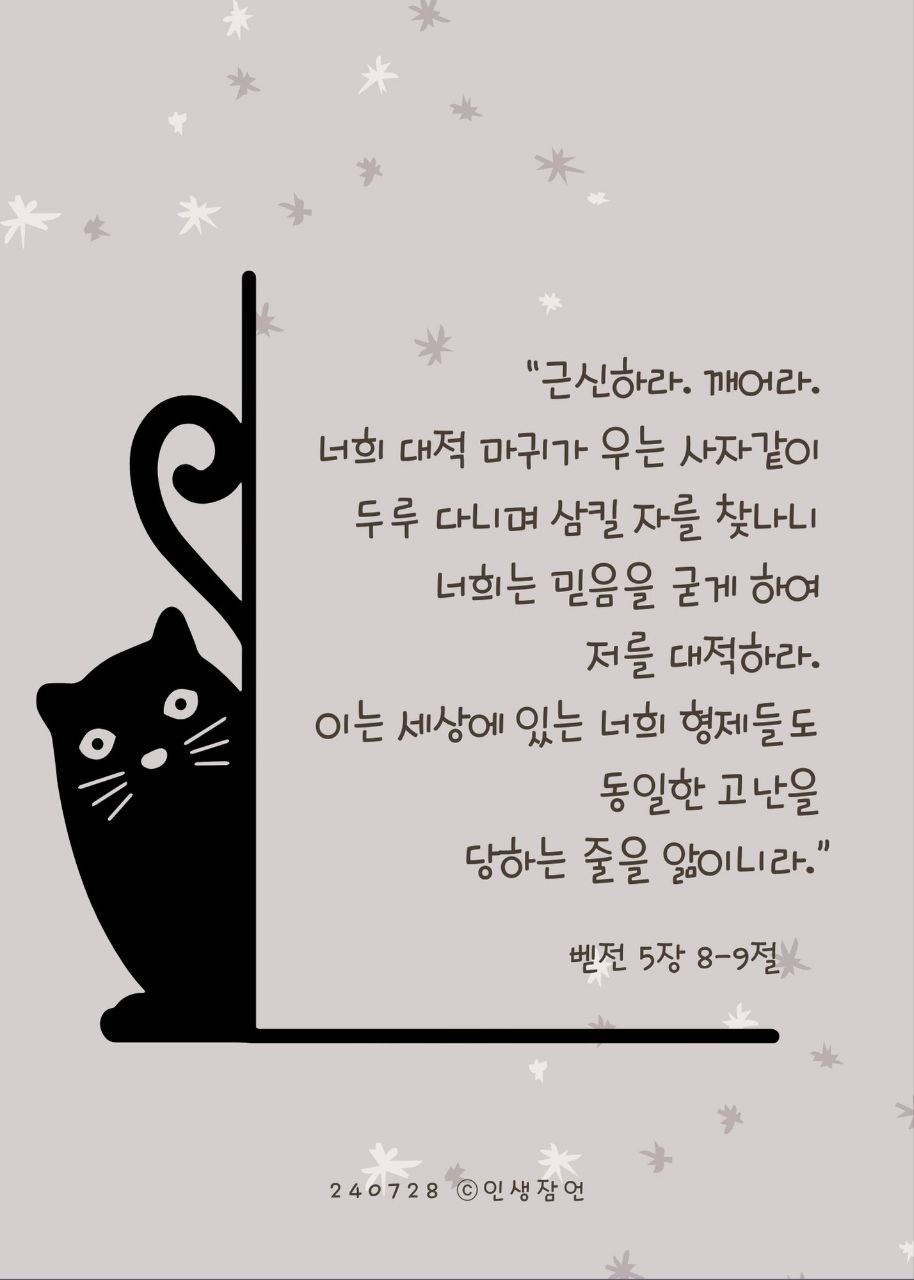 "근신하라. 깨어라.
너희 대적 마귀가 우는 사자같이
두루 다니며 삼킬 자를 찾나니
너희는 믿음을 굳게 하여
저를 대적하라.
이는 세상에 있는 너희 형제들도
동일한 고난을
당하는 줄을 앎이니라."
벧전 5장 8-9절
240728 ©인생잠언